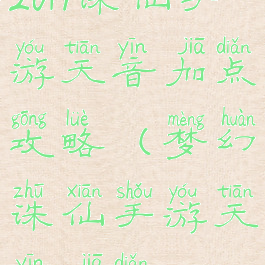 诛仙手
yóu tiān yīn jiā diǎn
游天音加点
gōng lüè mèng huàn
攻略(梦幻
zhū xiān shǒu yóu tiān
诛仙手游天
yīn jiā diǎn